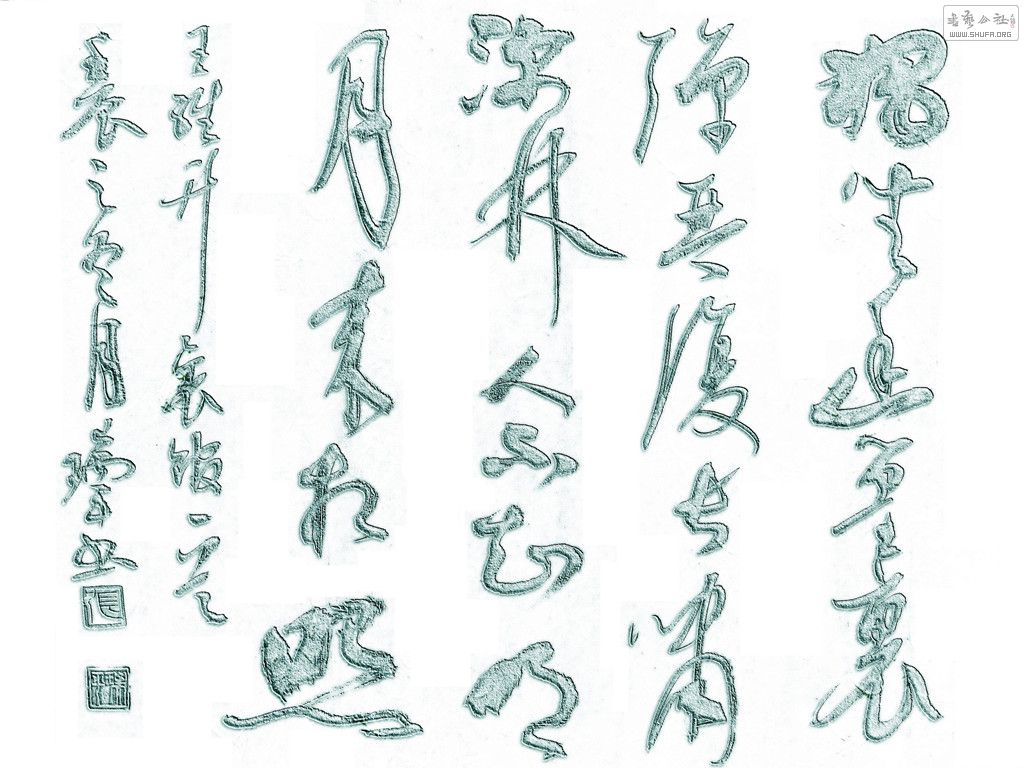 書藝公社
WWW.SHUFA.ORG
獨坐幽篁裏
彈琴復長嘯
深林人不知明
月來相照
王維竹裏館一首
之冬月 書